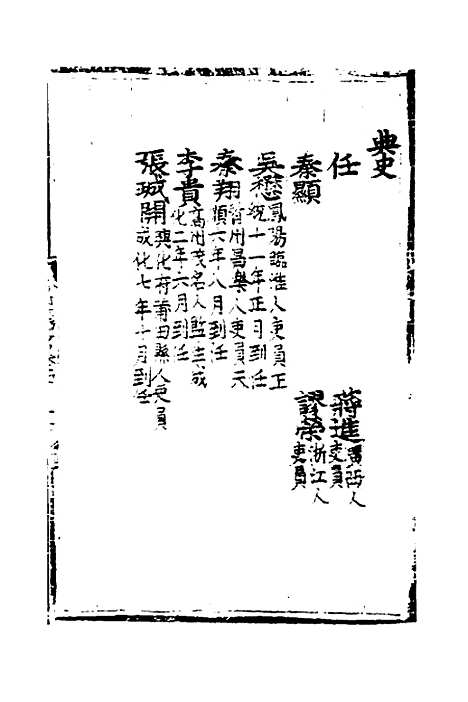 典史
任　蔣進 廣西人吏員
秦顯　謬榮 浙江人吏員
吳懋 鳳陽臨淮人吏員正統十一年正月到任
秦翔 州昌樂人吏員天順六年八月到任
李貴 高州茂名人監生成化二年六月到任
張城 興化府莆田縣人吏員成化七年十月到任